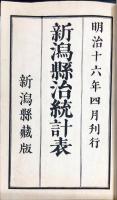 明治十六年四月刊行
新潟縣治統計表
新潟縣藏版